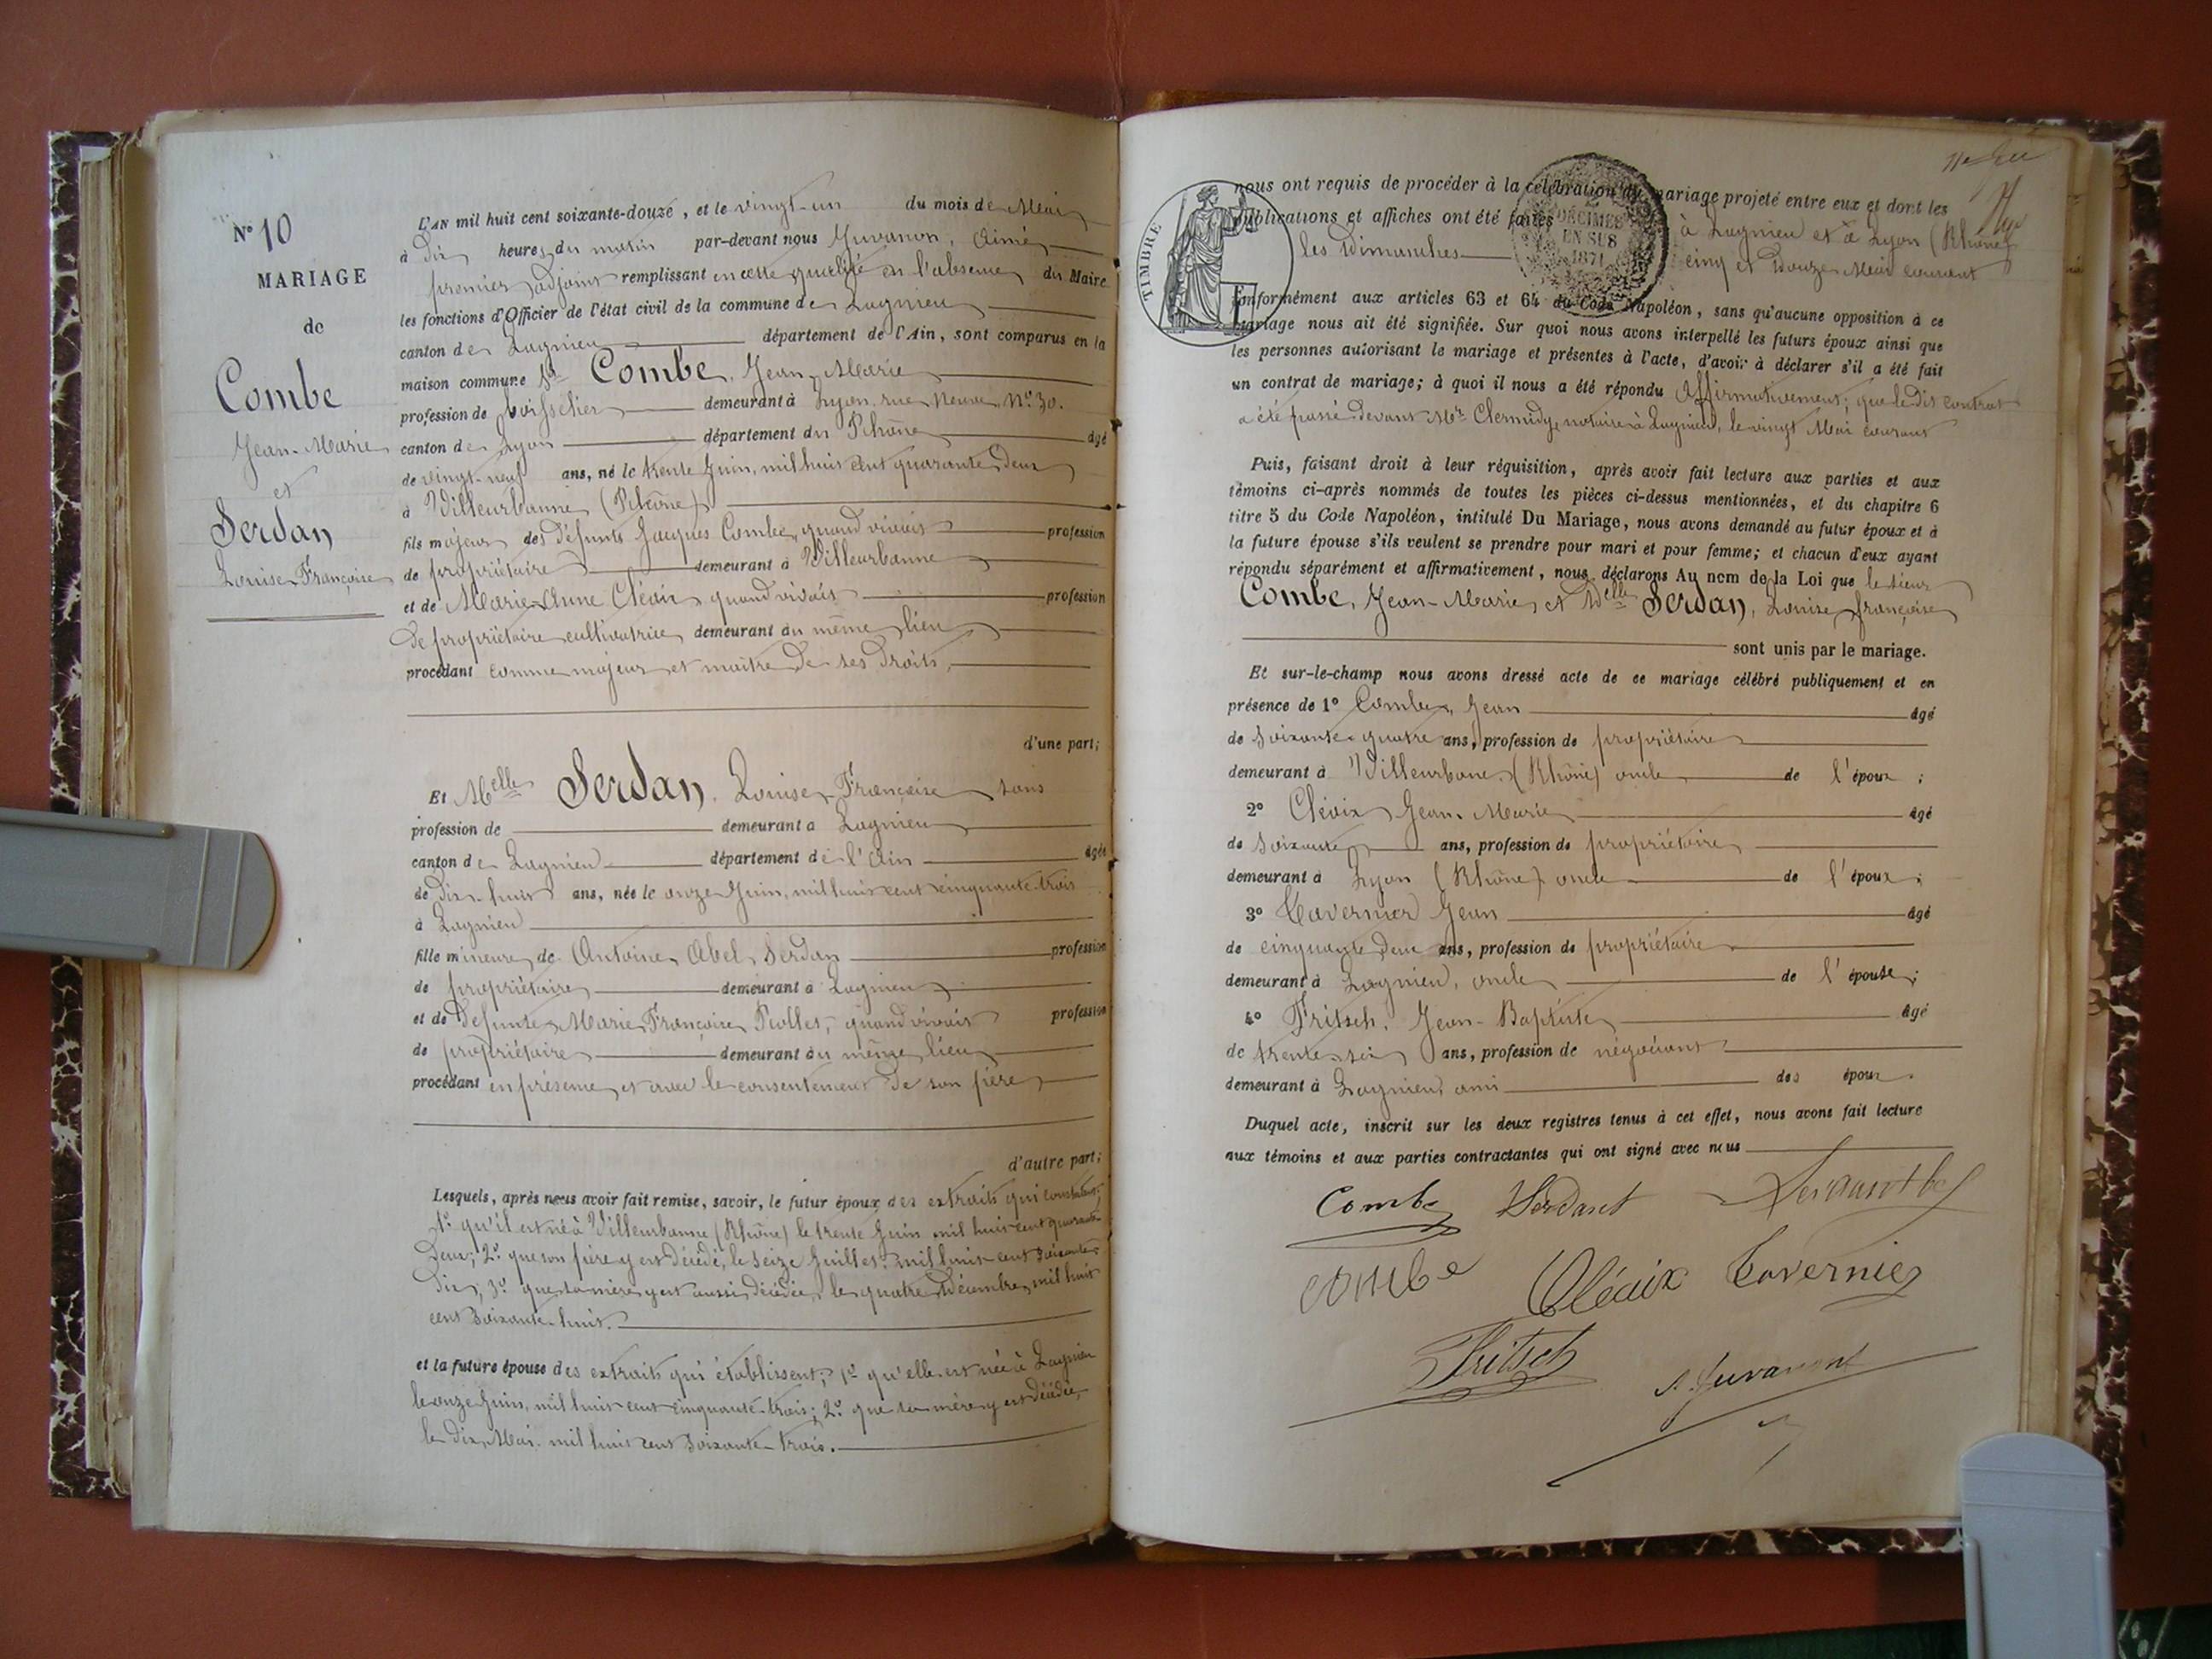 N° 10
MARIAGE
de
Combe
Jean-Marie
et
Serdan
Louise Françoise
L'AN mil huit cent soixante-douze, et le vingt-un du mois de Mai
à Dix heures du matin par-devant nous Juvanon, Aimé
premier adjoint remplissant en cette qualité en l'absence du Maire
les fonctions d'Officier de l'état civil de la commune de Lagnieu
canton de Lagnieu département de l'Ain, sont comparus en la
maison commune Sr Combe, Jean-Marie
profession de boisselier demeurant à Lyon, rue Neuve, N° 30.
canton de Lyon département du Rhône âgé
de vingt-neuf ans, né le trente Juin, mil huit cent quarante deux
à Villeurbanne (Rhône)
fils majeur des défunts Jacques Combe, quand vivait profession
de propriétaire demeurant à Villeurbanne
et de Marie-Anne Cléaix quand vivait profession
de propriétaire cultivatrice demeurant au même lieu
procédant comme majeur et maître de ses droits,
d'une part;
Et Melle Serdan, Louise Françoise sans
profession de demeurant à Lagnieu
canton de Lagnieu département de l'Ain âgée
de Dix-huit ans, née le onze Juin, mil huit cent cinquante-trois
à Lagnieu
fille mineure de Antoine Abel Serdan profession
de propriétaire demeurant à Lagnieu
et de Defunte Marie Françoise quand vivait profession
de propriétaire demeurant au même lieu
procédant en présence et avec le consentement de son père
d'autre part;
Lesquels, après nous avoir fait remise, savoir, le futur époux des extraits qui constatent;
1° qu'il est né à Villeurbanne (Rhône) le trente Juin mil huit cent quarante
Deux; 2° que son père y est décédé, le seize Juillet mil huit cent soixante-
Dix; 3° que sa mère y est aussi décédée, le quatre Décembre mil huit
cent soixante-huit.
et la future épouse des extraits qui établissent; 1° qu'elle est née à Lagnieu
le onze Juin, mil huit cent cinquante-trois; 2° que sa mère y est décédée,
le dix Mai mil huit cent soixante-trois.
TIMBRE
DÉCIMES
EN SUS
1871
nous ont requis de procéder à la célébration du mariage projeté entre eux et dont les
publications et affiches ont été faites à Lagnieu et à Lyon (Rhône)
les Dimanches cinq et Douze Mai courant
Conformément aux articles 63 et 64 du Code Napoléon, sans qu'aucune opposition à ce
mariage nous ait été signifiée. Sur quoi nous avons interpellé les futurs époux ainsi que
les personnes autorisant le mariage et présentes à l'acte, d'avoir à déclarer s'il a été fait
un contrat de mariage; à quoi il nous a été répondu Affirmativement; que le dit contrat
a été passé devant Me notaire à Lagnieu, le vingt Mai courant
Puis, faisant droit à leur réquisition, après avoir fait lecture aux parties et aux
témoins ci-après nommés de toutes les pièces ci-dessus mentionnées, et du chapitre 6
titre 5 du Code Napoléon, intitulé Du Mariage, nous avons demandé au futur époux et à
la future épouse s'ils veulent se prendre pour mari et pour femme; et chacun d'eux ayant
répondu séparément et affirmativement, nous déclarons Au nom de la Loi que le sieur
Combe, Jean-Marie et Delle Serdan, Louise françoise
sont unis par le mariage.
Et sur-le-champ nous avons dressé acte de ce mariage célébré publiquement et en
présence de 1° Combe, Jean âgé
de soixante-quatre ans, profession de propriétaire
demeurant à Villeurbane (Rhône) oncle de l'époux;
2° Cléaix Jean-Marie âgé
de soixante ans, profession de propriétaire
demeurant à Lyon (Rhône) oncle de l'époux;
3° Tavernier Jean âgé
de cinquante deux ans, profession de propriétaire
demeurant à Lagnieu, oncle de l'épouse;
4° Fritsch, Jean-Baptiste âgé
de trente-six ans, profession de négociant
demeurant à Lagnieu ami des époux.
Duquel acte, inscrit sur les deux registres tenus à cet effet, nous avons fait lecture
aux témoins et aux parties contractantes qui ont signé avec nous
Combe Serdant
combe Cléaix Tavernier
Fritsch A. Juvanon